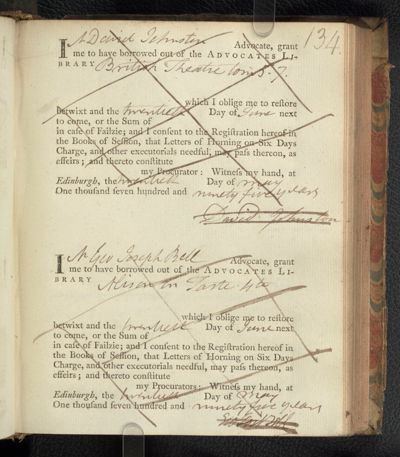 134.
I Mr David Johnston Advocate, grant
me to have borrowed out of the ADVOCATES LI-
BRARY British Theatre tom 5. 7.
which I oblige me to restore
betwixt and the twentieth Day of June next
to come, or the Sum of
in case of Failzie; and I consent to the Registration hereof in
the Books of Session, that Letters of Horning on Six Days
Charge, and other executorials needful, may pass thereon, as
effeirs; and thereto constitute
my Procurator: Witness my hand, at
Edinburgh, the twentieth Day of May
One thousand seven hundred and ninety five years
David Johnston
I Mr Geo Joseph Bell Advocate, grant
me to have borrowed out of the ADVOCATES LI-
BRARY Alison on Taste 4to
which I oblige me to restore
betwixt and the twentieth Day of June next
to come, or the Sum of
in case of Failzie; and I consent to the Registration hereof in
the Books of Session, that Letters of Horning on Six Days
Charge, and other executorials needful, may pass thereon, as
effeirs; and thereto constitute
my Procurators: Witness my hand, at
Edinburgh, the twentieth Day of May
One thousand seven hundred and ninety five years